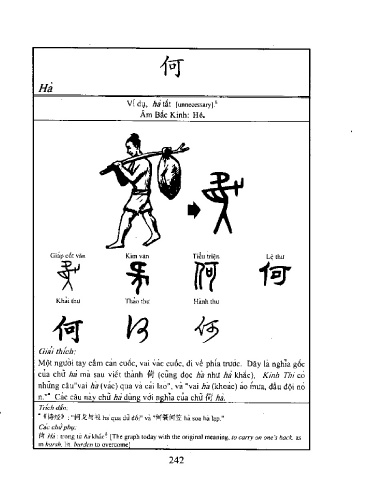 何
Hà
Ví dụ, hà tất [unnecessary].⁶
Âm Bắc Kinh: Hé.
Giáp cốt văn Kim văn Tiểu triện Lệ thư
何
Khải thư Thảo thư Hành thư
何 何 何
Giải thích:
Một người tay cầm cán cuốc, vai vác cuốc, đi về phía trước. Đây là nghĩa gốc
của chữ hà mà sau viết thành 荷 (cũng đọc hà như hà khắc). Kinh Thi có
những câu "vai hà (vác) qua và cái lao", và "vai hà (khoác) áo mưa, đầu đội nó
n." Các câu này chữ hà dùng với nghĩa của chữ 何 hà.
Trích dẫn:
《诗经》: "何戈与祋 hà qua dữ đối" và "何蓑何笠 hà soa hà lạp."
Các chữ phụ:
荷 Hà: trong từ hà khắc [The graph today with the original meaning, to carry on one's back, as
in harsh, lit. burden to overcome]
242